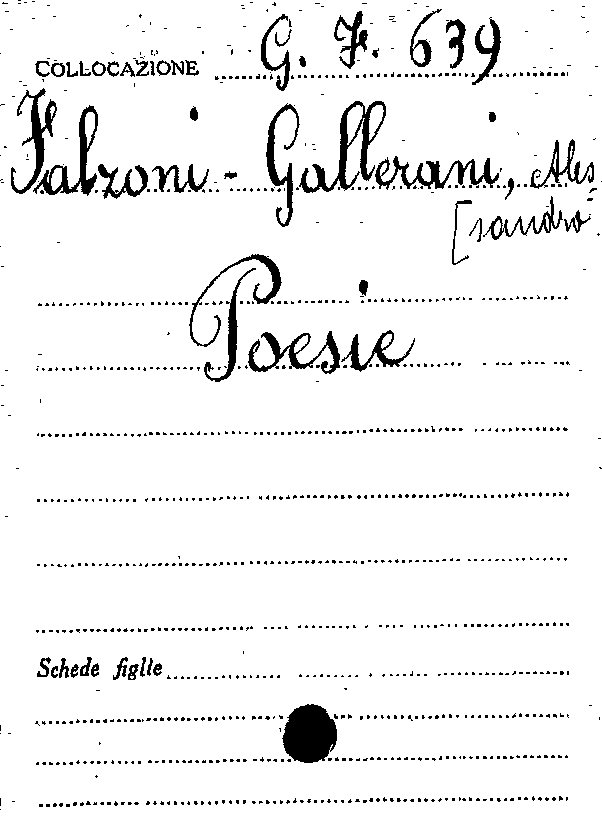 COLLOCAZIONE G. F. 639
Falzoni-Gallerani, Ales=
[sandro
Poesie
Schede figlie